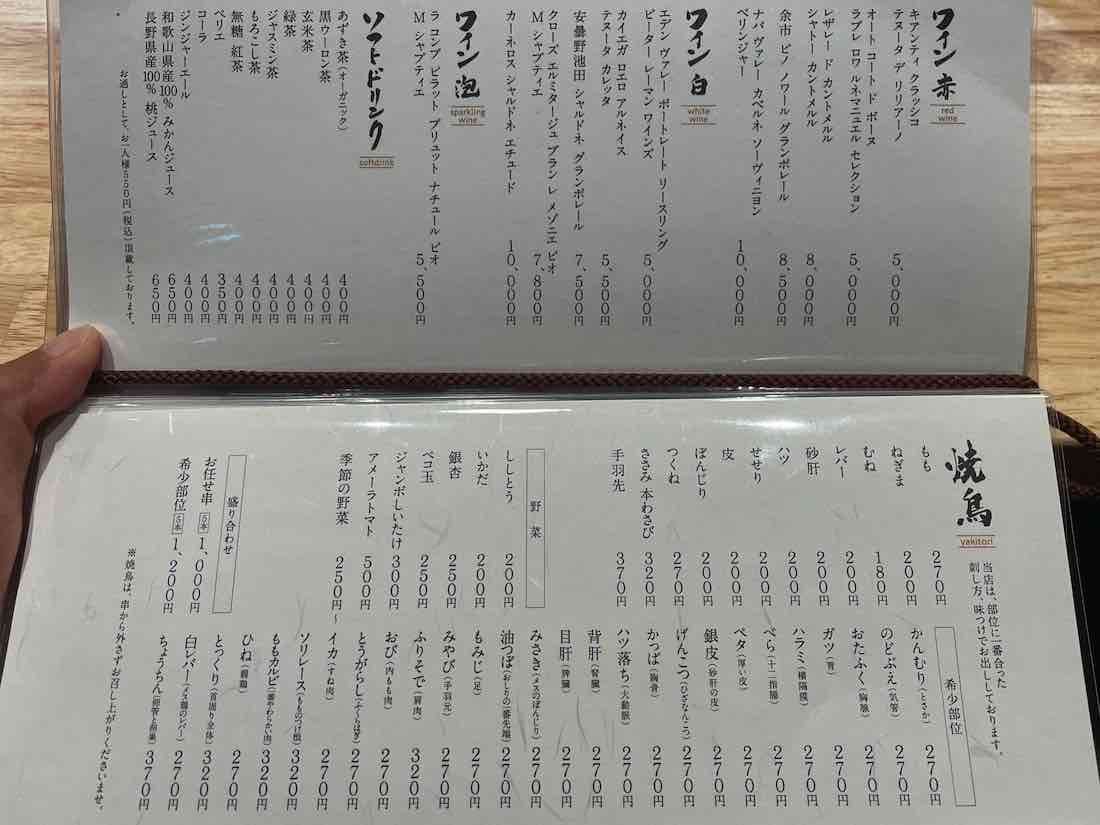 ワイン 赤
red wine
キアンティ クラッシコ
テヌータ デ リリアーノ 5,000円
オート コート ド ボーヌ
ラブレ ロワ ルネマニュエル セレクション 5,000円
レザレー ド カントメルル
シャトー カントメルル 8,000円
余市 ピノ ノワール グランポレール 8,500円
ナパ ヴァレー カベルネ ソーヴィニヨン
ベリンジャー 10,000円
ワイン 白
white wine
エデン ヴァレー ポートレート リースリング
ピーター レーマン ワインズ 5,000円
カイエガ ロエロ アルネイス
テヌータ カレッタ 5,500円
安曇野池田 シャルドネ グランポレール 7,500円
クローズ エルミタージュ ブラン レ メゾニエ ビオ
M シャプティエ 7,800円
カーネロス シャルドネ エチュード 10,000円
ワイン 泡
sparkling wine
ラ コンブ ピラット ブリュット ナチュール ビオ
M シャプティエ 5,500円
ソフトドリンク
softdrink
あずき茶(オーガニック) 400円
黒ウーロン茶 400円
玄米茶 400円
緑茶 400円
ジャスミン茶 400円
もろこし茶 400円
無糖 紅茶 400円
ペリエ 350円
コーラ 400円
ジンジャーエール 400円
和歌山県産100% みかんジュース 650円
長野県産100% 桃ジュース 650円
お通しとして、お一人様550円(税込)頂戴しております。
焼鳥
yakitori
当店は、部位に一番合った
刺し方、味つけでお出ししております。
もも 270円
ねぎま 200円
むね 180円
レバー 200円
砂肝 200円
ハツ 200円
せせり 200円
皮 200円
ぼんじり 200円
つくね 270円
ささみ 本わさび 320円
手羽先 370円
野菜
ししとう 200円
いかだ 200円
銀杏 250円
ペコ玉 250円
ジャンボしいたけ 300円
アメーラトマト 500円
季節の野菜 250円~
盛り合わせ
お任せ串 5本 1,000円
希少部位 5本 1,200円
希少部位
かんむり(とさか) 270円
のどぶえ(気管) 270円
おたふく(胸腺) 270円
ガツ(胃) 270円
ハラミ(横隔膜) 270円
べら(十二指腸) 270円
ペタ(厚い皮) 270円
銀皮(砂肝の皮) 270円
げんこつ(ひざなんこつ) 270円
かっぱ(胸骨) 270円
ハツ落ち(大動脈) 270円
背肝(腎臓) 270円
目肝(脾臓) 270円
みさき(メスのぼんじり) 270円
油つぼ(おしりの一番先端) 270円
もみじ(足) 270円
みやび(手羽元) 270円
ふりそで(肩肉) 320円
おび(内もも肉) 270円
とうがらし(ふくらはぎ) 270円
イカ(すね肉) 270円
ソリレース(もものつけ根) 320円
ももカルビ(一番やわらかい肉) 320円
ひね(親鶏) 270円
とっくり(首周り全体) 320円
白レバー(メス鶏のレバー) 270円
ちょうちん(卵管と卵巣) 370円
※焼鳥は、串から外さずお召し上がりくださいませ。